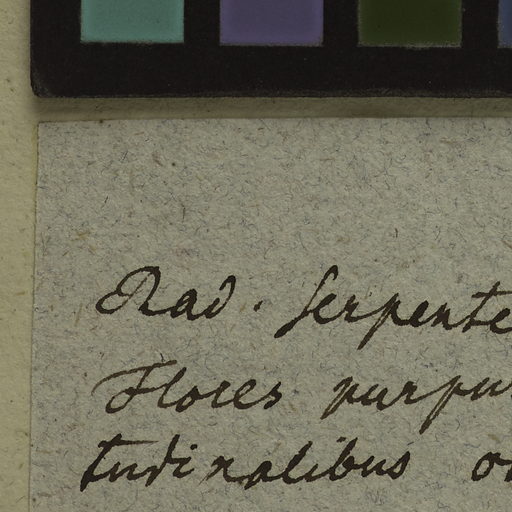 Rad. serpente
Flores purpu
tudinalibus o